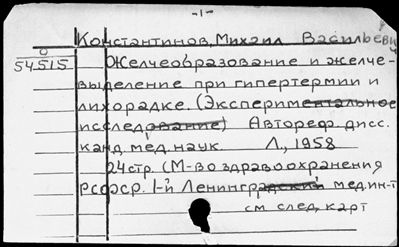 -1-
Константинов, Михаил Васильевич
0
54515
Желчеобразование и желче-
выделение при гипертермии и
лихорадке. (Экспериментальное
исследование) Автореф. дисс.
канд. мед. наук. Л., 1958
24 стр. (М-во здравоохранения
РСФСР. 1-й Ленинградский мед. ин-т
см след, карт